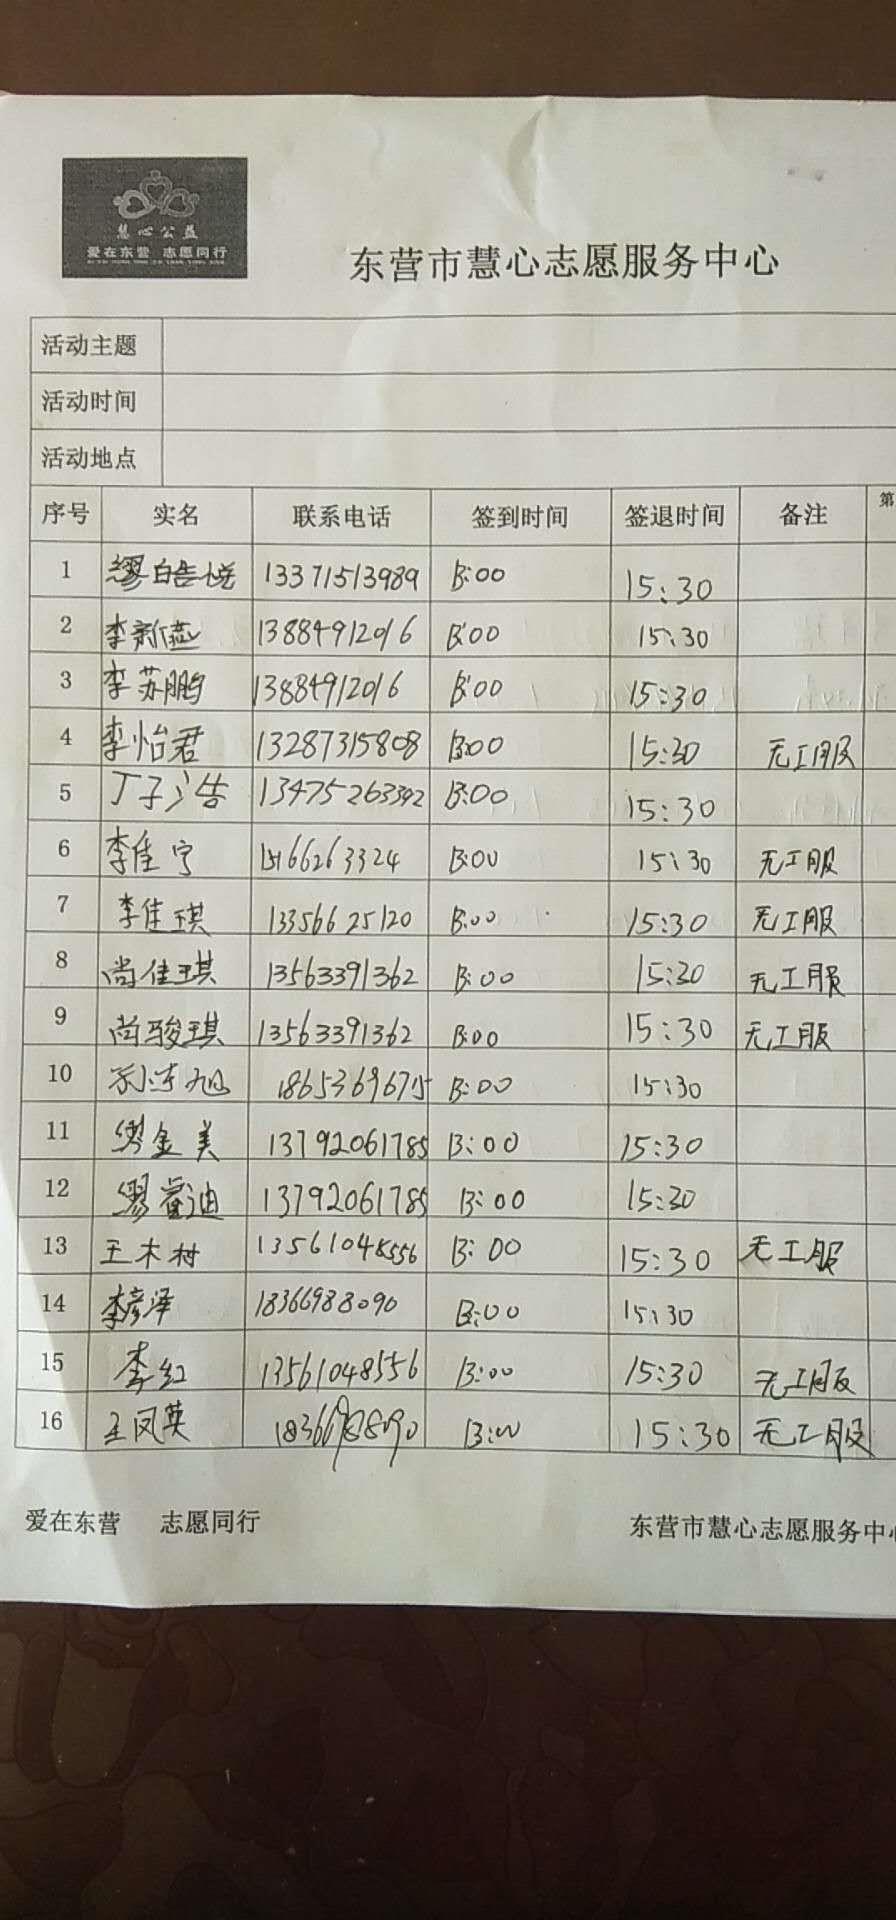 慧心公益
爱在东营 志愿同行
东营市慧心志愿服务中心
活动主题
活动时间
活动地点
序号 实名 联系电话 签到时间 签退时间 备注 第
1 缪皓悦 13371513989 13:00 15:30
2 李新燕 13884912016 13:00 15:30
3 李苏鹏 13884912016 13:00 15:30
4 李怡君 13287315808 13:00 15:30 无工服
5 丁子浩 13475263392 13:00 15:30
6 李佳宁 13:00 15:30 无工服
7 李佳琪 13356625120 13:00 15:30 无工服
8 尚佳琪 13563391362 13:00 15:30 无工服
9 尚骏琪 13563391362 13:00 15:30 无工服
10 旭 18653696715 13:00 15:30
11 缪金美 13792061785 13:00 15:30
12 缪睿迪 13792061785 13:00 15:30
13 王木村 13561048556 13:00 15:30 无工服
14 李彦泽 18366988090 13:00 15:30
15 李红 13561048556 13:00 15:30 无工服
16 王凤英 18366988090 13:00 15:30 无工服
爱在东营 志愿同行 东营市慧心志愿服务中